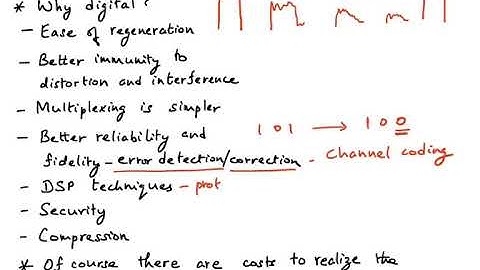 * Why digital?
- Ease of regeneration
- Better immunity to
distortion and interference
- Multiplexing is simpler
- Better reliability and 1 0 1 → 1 0 0
fidelity - error detection/correction - Channel coding
- DSP techniques - prot
- Security
- Compression
* Of course there are costs to realize the